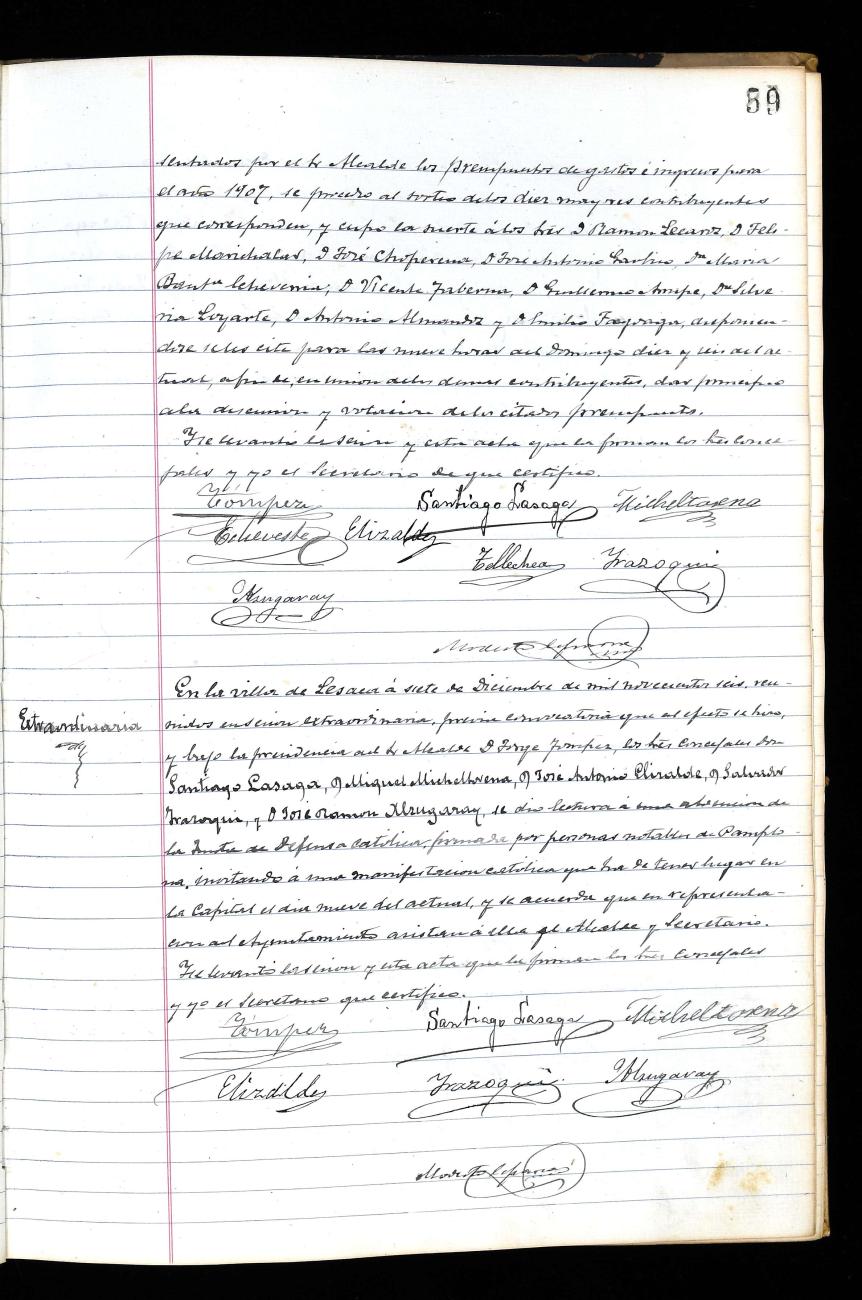 89
sentados por el Sr Alcalde los presupuestos de gastos é ingresos para
el año 1907, se procedio al sorteo de los diez mayores contribuyentes
que corresponden, y cupo la suerte á los Sres D Ramon Lecaroz, D Feli-
pe Marichalar, D José Choperena, D José Antonio, Dña Maria
Bauta Echeverria, D Vicente Taberna, D Guillermo, Dña Silve
ria Loyarte, D Antonio Almandoz y D Emilio, disponien-
dose se les cite para las nueve horas del Domingo diez y seis del ac-
tual, a fin de, en union de los demas contribuyentes, dar principio
a la discusion y votacion de los citados presupuestos.
Se levantó la sesion y esta acta que la firman los Sres Conce-
jales y yo el Secretario de que certifico.
Tómpez Santiago Lasaga Micheltorena
Echeveste Elizalde
Tellechea Irazoqui
Alzugaray
Modesto
En la villa de Lesaca á siete de Diciembre de mil novecientos seis, reu-
Extraordinaria
nidos en sesion extraordinaria, previa convocatoria que al efecto se hizo,
y bajo la presidencia del Sr Alcalde D Jorge Tompez, los Sres Concejales Don
Santiago Lasaga, D Miguel Micheltorena, D José Antonio Elizalde, D Salvador
Irazoqui, y D José Ramon Alzugaray, se dio lectura á una de
la Junta de Defensa Catolica, firmada por personas notables de Pamplo-
na, invitando á una manifestacion católica que ha de tener lugar en
la Capital el dia nueve del actual, y se acuerda que en representa-
cion del Ayuntamiento asistan á ella el Alcalde y Secretario.
Se levantó la sesion y esta acta que la firman los Sres Concejales
y yo el Secretario que certifico.
Tómpez Santiago Lasaga Micheltorena
Elizalde Irazoqui Alzugaray
Modesto